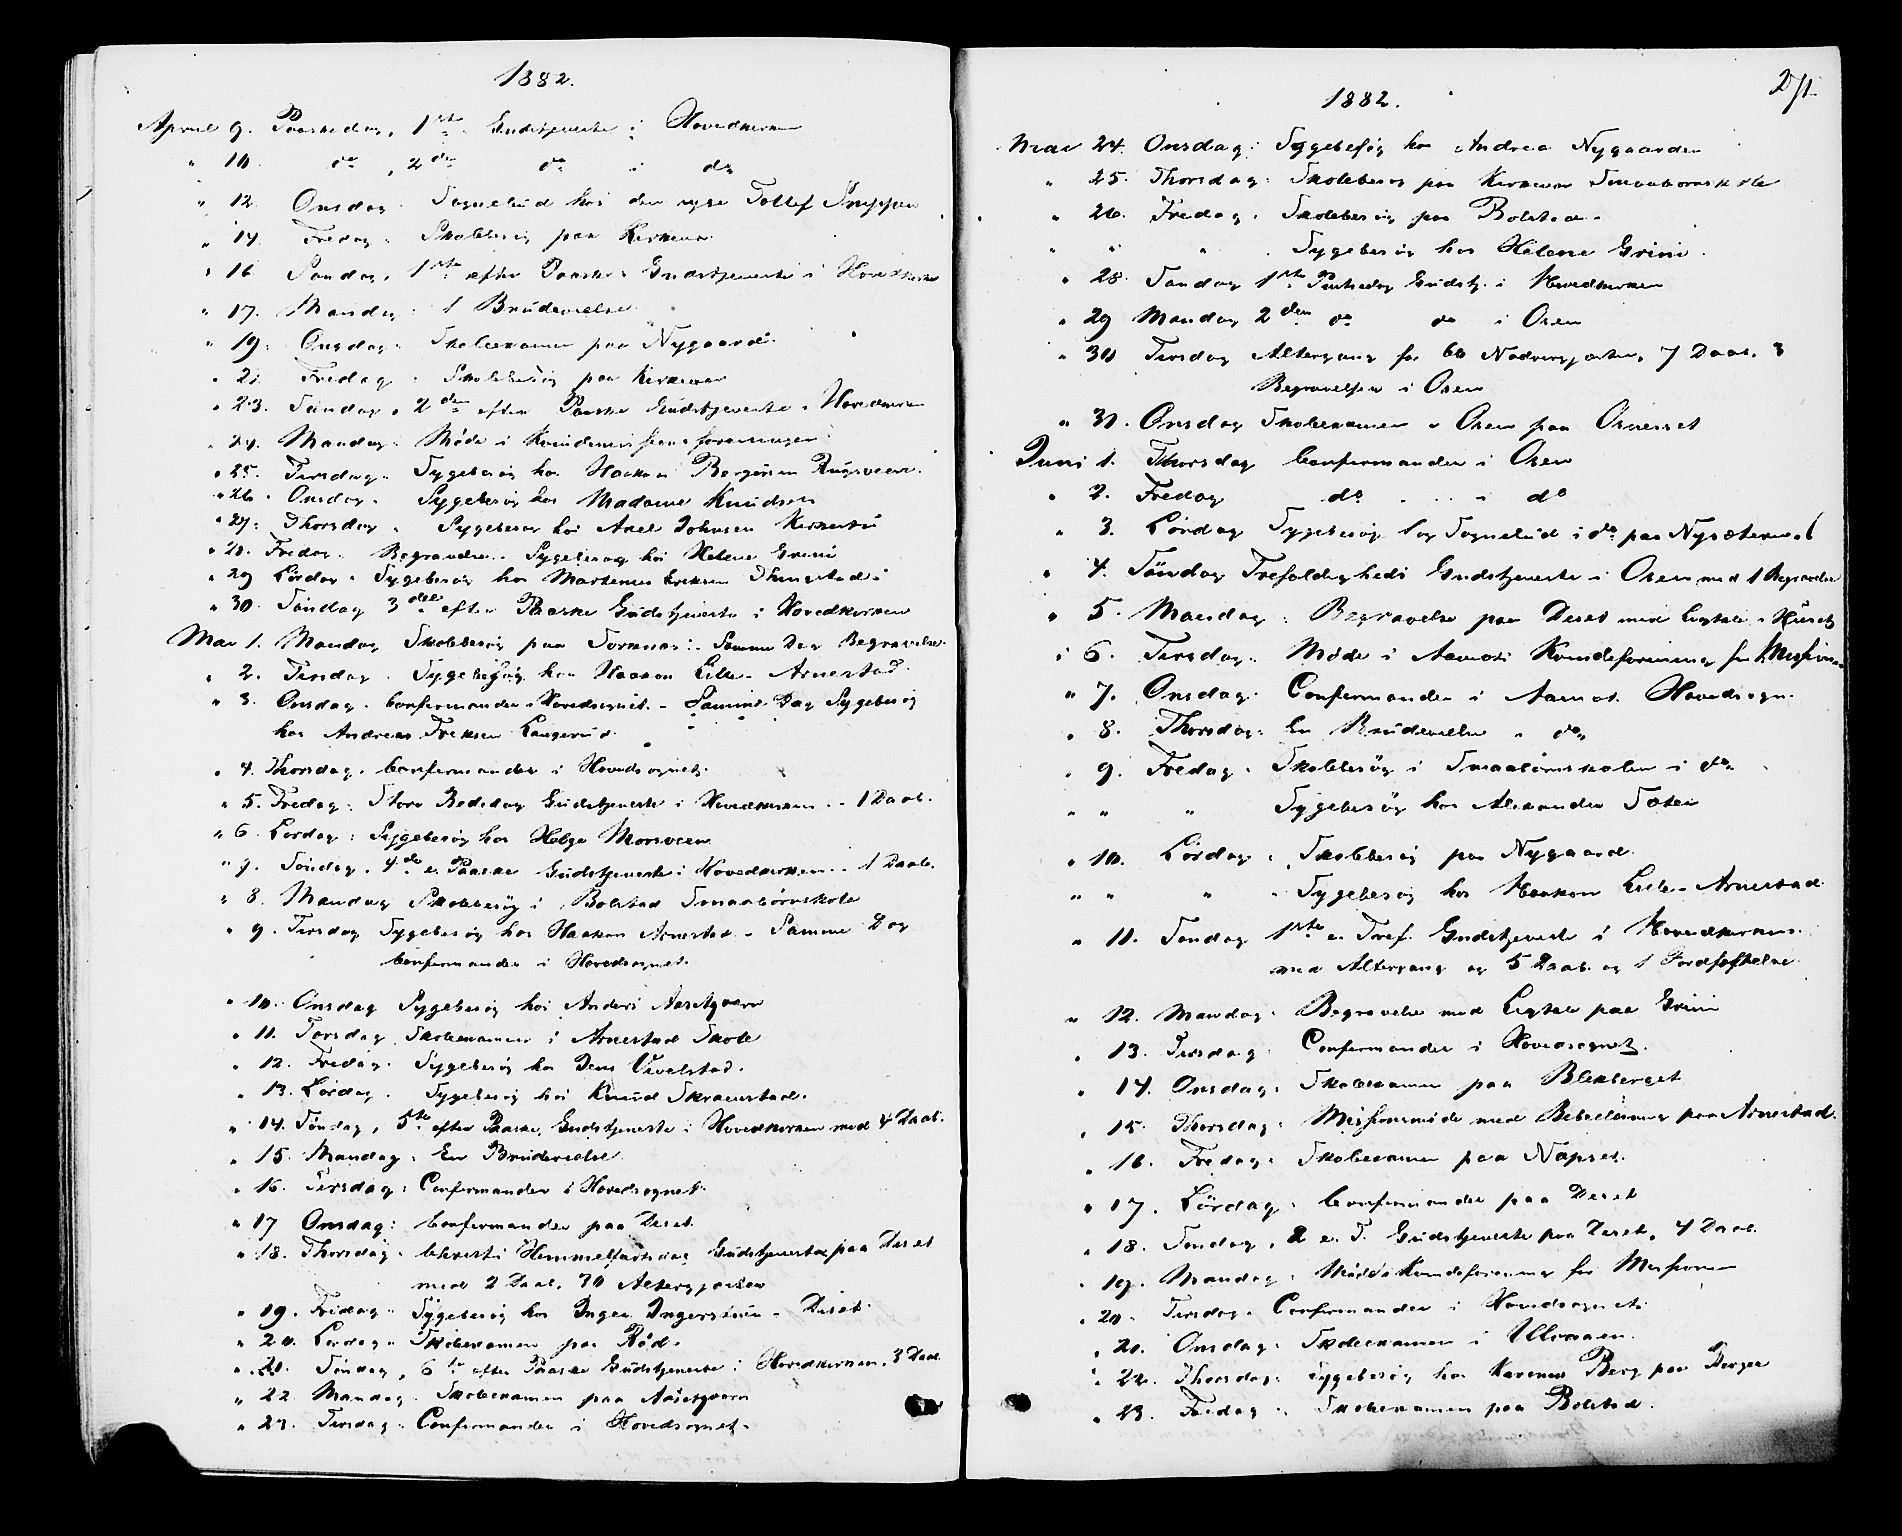 1882.
April 9. Paaskedag, 1ste Gudstjeneste i Hovedkirken
" 10. do, 2den do i do
" 12. Onsdag. Sognebud hos den syge Tollef
" 14. Fredag. Skolebesøg paa Kirkemo
" 16 Søndag, 1ste efter Paaske. Gudstjeneste i Hovedkirken
" 17. Mandag. 1 Brudevielse
" 19. Onsdag. Skoleexamen paa Nygaard.
" 21. Fredag. Skolebesøg paa Kirkemo
" 23. Søndag, 2den efter Paaske Gudstjeneste i Hovedkirken
" 24. Mandag. Møde i Kvindemissionsforeningen
" 25. Tirsdag. Sygebesøg hos Haakon Bergersen
" 26. Onsdag. Sygebesøg hos Madame Knudsen
" 27. Thorsdag. Sygebesøg hos Axel Johnsen
" 28. Fredag. Begravelse. Sygebesøg hos Helene Grini
" 29 Lørdag. Sygebesøg hos Martinus Eriksen
" 30. Søndag 3die efter Paaske Gudstjeneste i Hovedkirken
Mai 1. Mandag Skolebesøg paa Samme Dag Begravelse.
" 2. Tirsdag. Sygebesøg hos Haakon Lille-Arnestad.
" 3. Onsdag. Confirmander i Hovedsognet. - Samme Dag Sygebesøg
hos Andreas Langerud.
" 4. Thorsdag. Confirmander i Hovedsognet.
" 5. Fredag. Store Bededag Gudstjeneste i Hovedkirken - 1 Daab.
" 6. Lørdag. Sygebesøg hos Helge
" 7. Søndag. 4de e. Paaske Gudstjeneste i Hovedkirken - 1 Daab.
" 8. Mandag Skolebesøg i Bolstad Smaabørnskole
" 9. Tirsdag Sygebesøg hos Haakon Arnestad - Samme Dag
Confirmander i Hovedsognet.
" 10. Onsdag Sygebesøg hos Anders
" 11. Torsdag Skoleexamen i Arnestad Skole
" 12. Fredag. Sygebesøg hos Jens
" 13. Lørdag. Sygebesøg hos Knud
" 14. Søndag, 5te efter Paaske, Gudstjeneste i Hovedkirken med 4 Daab.
" 15. Mandag. En Brudevielse.
" 16. Tirsdag. Confirmander i Hovedsognet.
" 17 Onsdag. Confirmander paa Deset.
" 18. Thorsdag. Christi Himmelfartsdag Gudstjeneste paa Deset
med 2 Daab, 70 Altergjæster
" 19. Fredag. Sygebesøg hos Inger - Deset.
" 20. Lørdag. Skoleexamen paa Rød.
" 21. Søndag, 6te efter Paaske Gudstjeneste i Hovedkirken. 3 Daab.
" 22. Mandag. Skoleexamen paa
" 23. Tirsdag. Confirmander i Hovedsognet.
271.
1882.
Mai 24. Onsdag. Sygebesøg hos Andrea Nygaarden
" 25. Thorsdag. Skolebesøg paa Kirkemo Smaabørnskole
" 26. Fredag. Skolebesøg paa Bolstad.
" " " Sygebesøg hos Helene Grini.
" 28. Søndag 1ste Pintsedag Gudstj. i Hovedkirken
" 29 Mandag 2den do do i Osen
" 30 Tirsdag Altergang for 60 Nadvergjæster, 7 Daab. 3
Begravelser i Osen
" 31. Onsdag Skoleexamen i Osen paa Osneset
Juni 1. Thorsdag Confirmander i Osen
" 2. Fredag do i do
" 3. Lørdag Sygebesøg og Sognebud i do paa Nysæteren
" 4. Søndag Trefoldigheds Gudstjeneste i Osen med 1 Begravelse
" 5. Mandag. Begravelse paa Deset med Ligtale i Huset
" 6. Tirsdag. Møde i Aamots Kvindeforening for Missionen
" 7. Onsdag. Confirmander i Aamot Hovedsogn.
" 8. Thorsdag. En Brudevielse i do
" 9. Fredag. Skolebesøg i Smaabørnskolen i do
" " " Sygebesøg hos Alexander
" 10. Lørdag. Skolebesøg paa Nygaard.
" " " Sygebesøg hos Haakon Lille-Arnestad
" 11. Søndag 1ste e. Tref. Gudstjeneste i Hovedkirken
med Altergang og 5 Daab og 1 Jordfæstelse.
" 12. Mandag. Begravelse med Ligtale paa Grini
" 13. Tirsdag. Confirmander i Hovedsognet.
" 14. Onsdag. Skoleexamen paa
" 15. Thorsdag. Missionsmøde med Bibellæsning paa Arnestad.
" 16. Fredag. Skoleexamen paa
" 17. Lørdag. Confirmander paa Deset
" 18. Søndag, 2 e. T. Gudstjeneste paa Deset, 4 Daab.
" 19. Mandag. Møde i Kvindeforening for Missionen
" 20. Tirsdag. Confirmander i Hovedsognet.
" 21. Onsdag. Skoleexamen i
" 22. Thorsdag. Sygebesøg hos Karenus Berg paa
" 23. Fredag. Skoleexamen paa Bolstad.